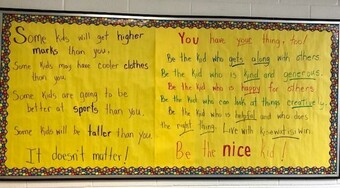 Some kids will get higher
marks than you,
Some kids may have cooler clothes
than you
Some kids are going to be
better at sports than you,
Some kids will be taller than you
It doesn't matter!
You have your thing, too!
Be the kid who gets along with others
Be the kid who is kind and generous.
Be the kid who is happy for others
Be the kid who can look at things creatively,
Be the kid who is helpful and who does
the right thing. Live with
Be the nice kid!